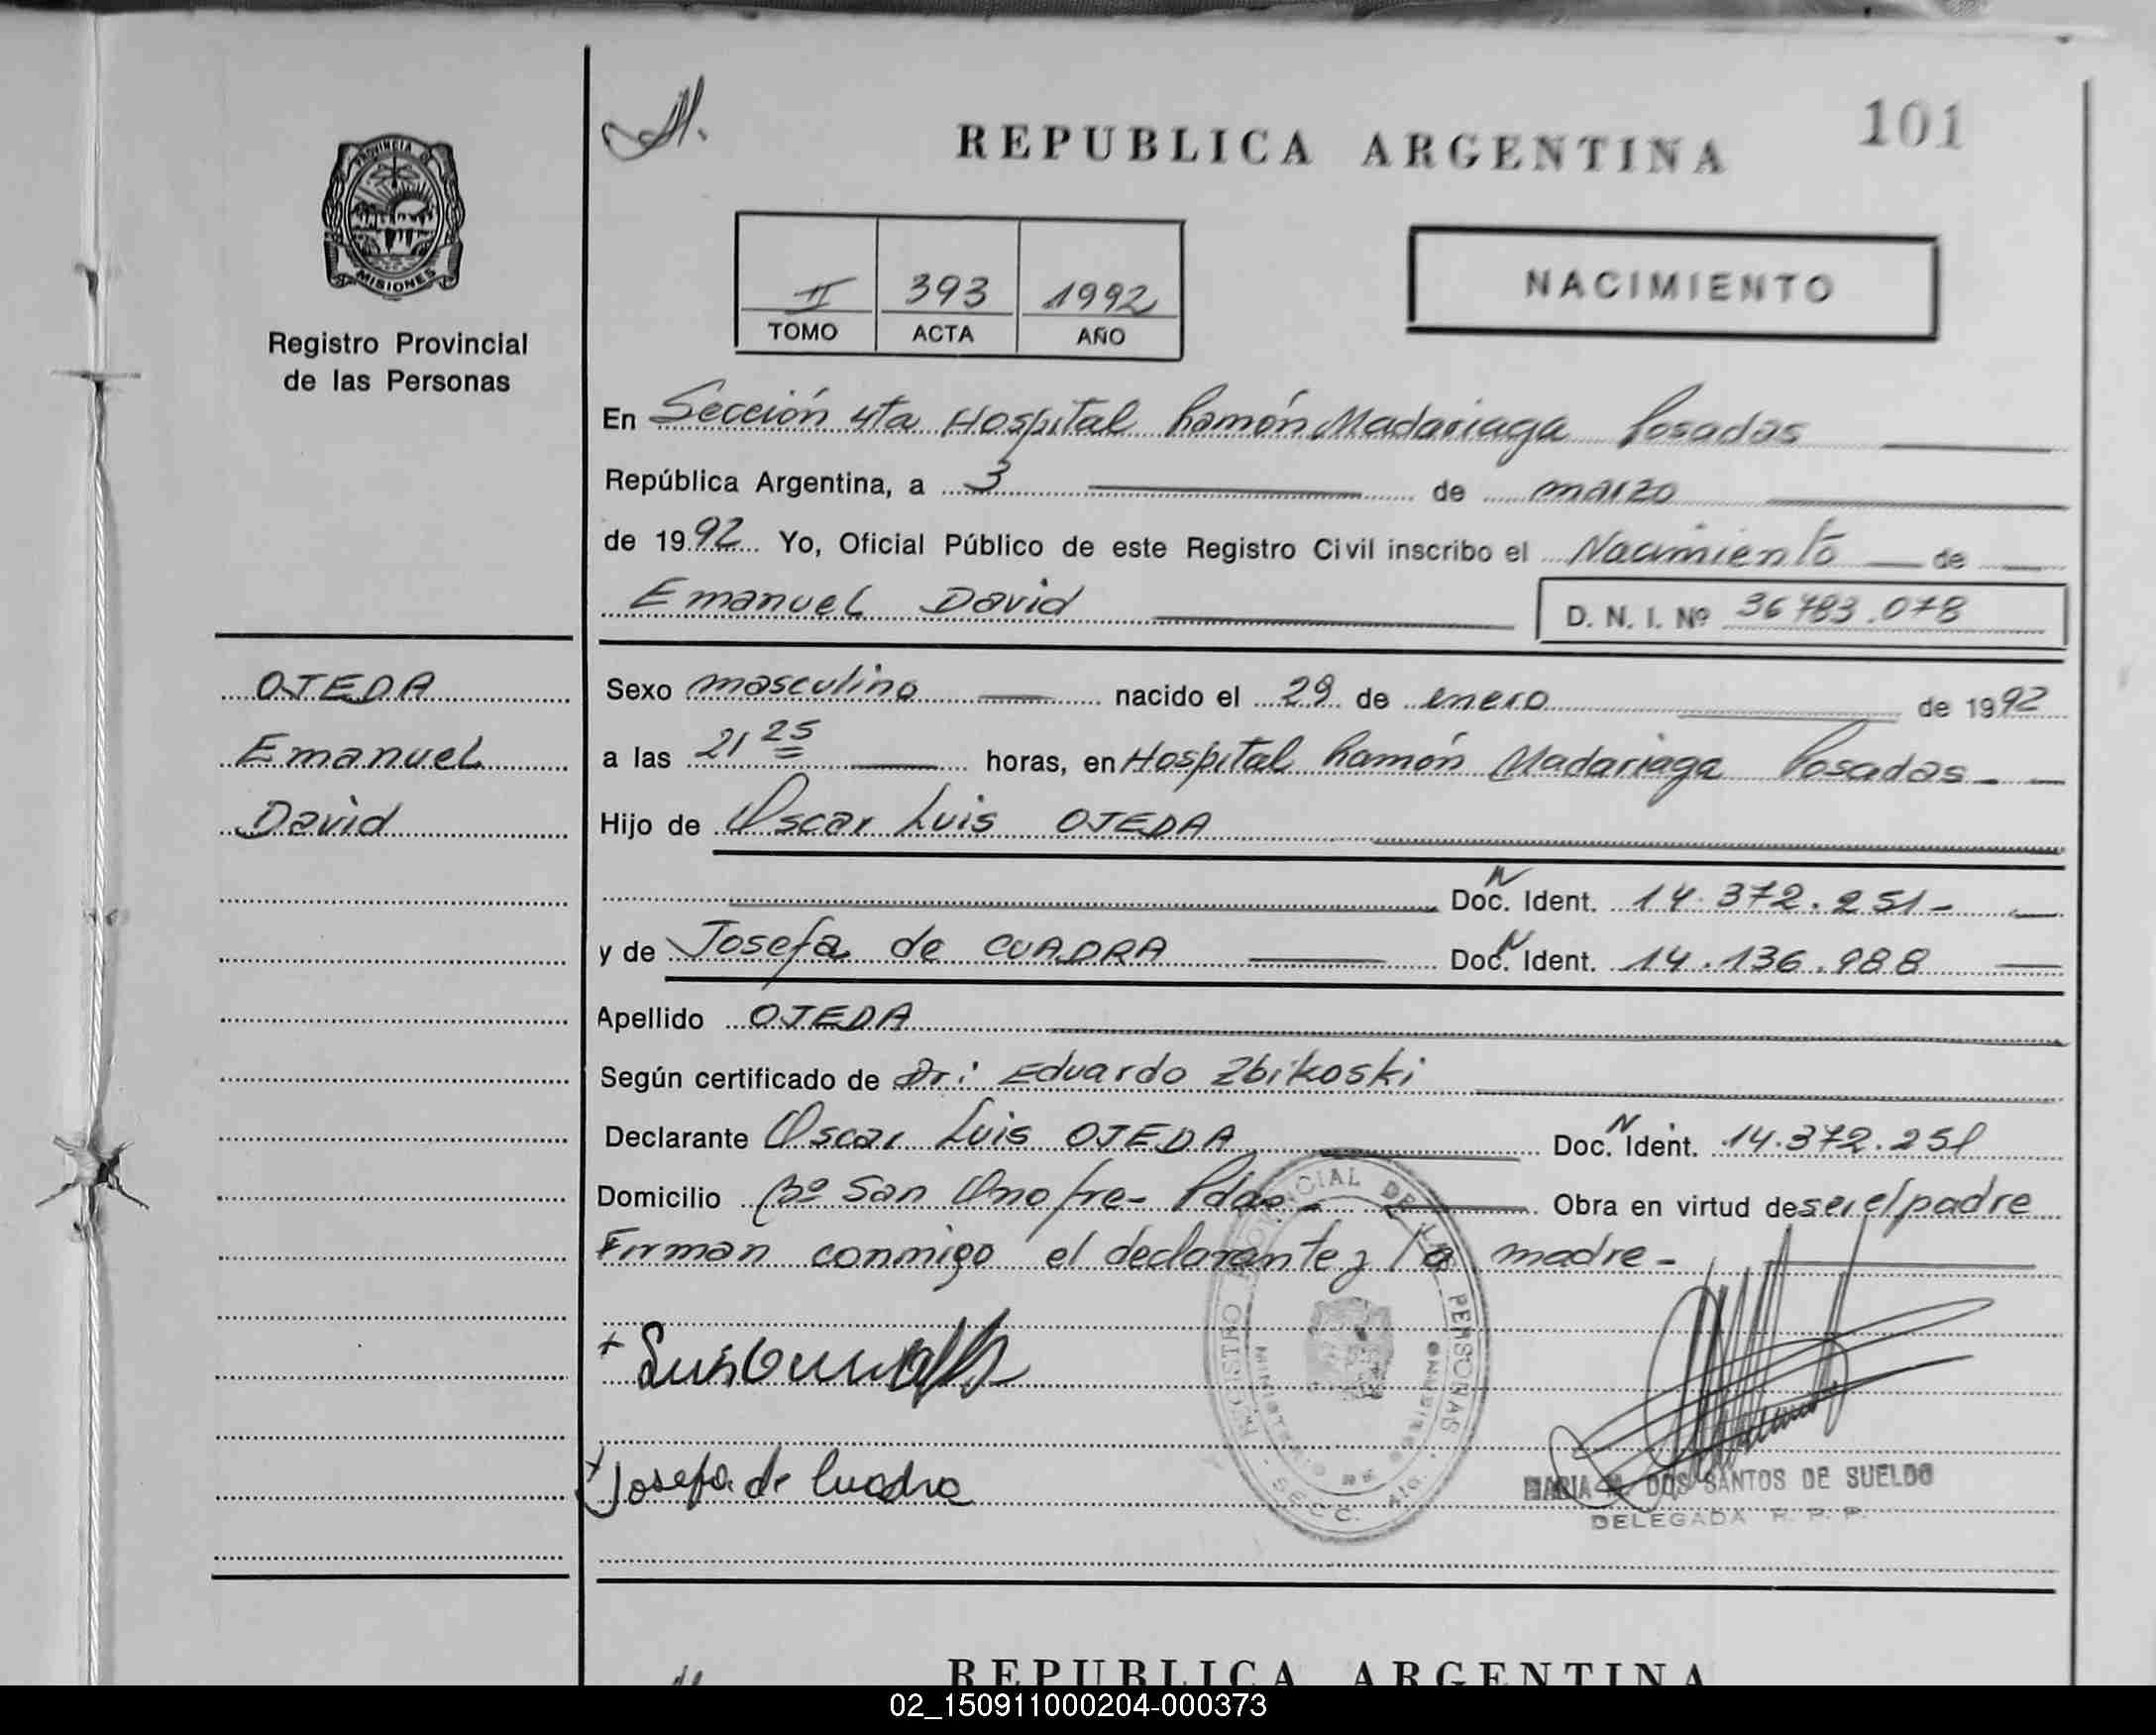 101
REPUBLICA ARGENTINA
PROVINCIA DE
MISIONES
Registro Provincial
de las Personas
II 393 1992
TOMO ACTA AÑO
NACIMIENTO
En Sección 4ta Hospital Ramón Madariaga Posadas
República Argentina, a 3 de marzo
de 1992 Yo, Oficial Público de este Registro Civil inscribo el Nacimiento de
Emanuel David D. N. I. Nº 36783.078
OJEDA
Emanuel
David
Sexo masculino nacido el 29 de enero de 1992
a las 21 25 horas, en Hospital Ramón Madariaga Posadas
Hijo de Oscar Luis OJEDA
Doc. N Ident. 14.372.251-
y de Josefa de CUADRA Doc. N Ident. 14.136.988
Apellido OJEDA
Según certificado de Dr: Eduardo Zbikoski
Declarante Oscar Luis OJEDA Doc. N Ident. 14.372.251
Domicilio Bº San Onofre- Pdas- Obra en virtud de ser el padre
Firman conmigo el declarante y la madre-
Josefa de Cuadra
REGISTRO PROVINCIAL DE LAS PERSONAS
MINISTERIO DE GOBIERNO
SECC. 4ta.
MARIA M. DOS SANTOS DE SUELDO
DELEGADA R. P. P.
REPUBLICA ARGENTINA
02_150911000204-000373